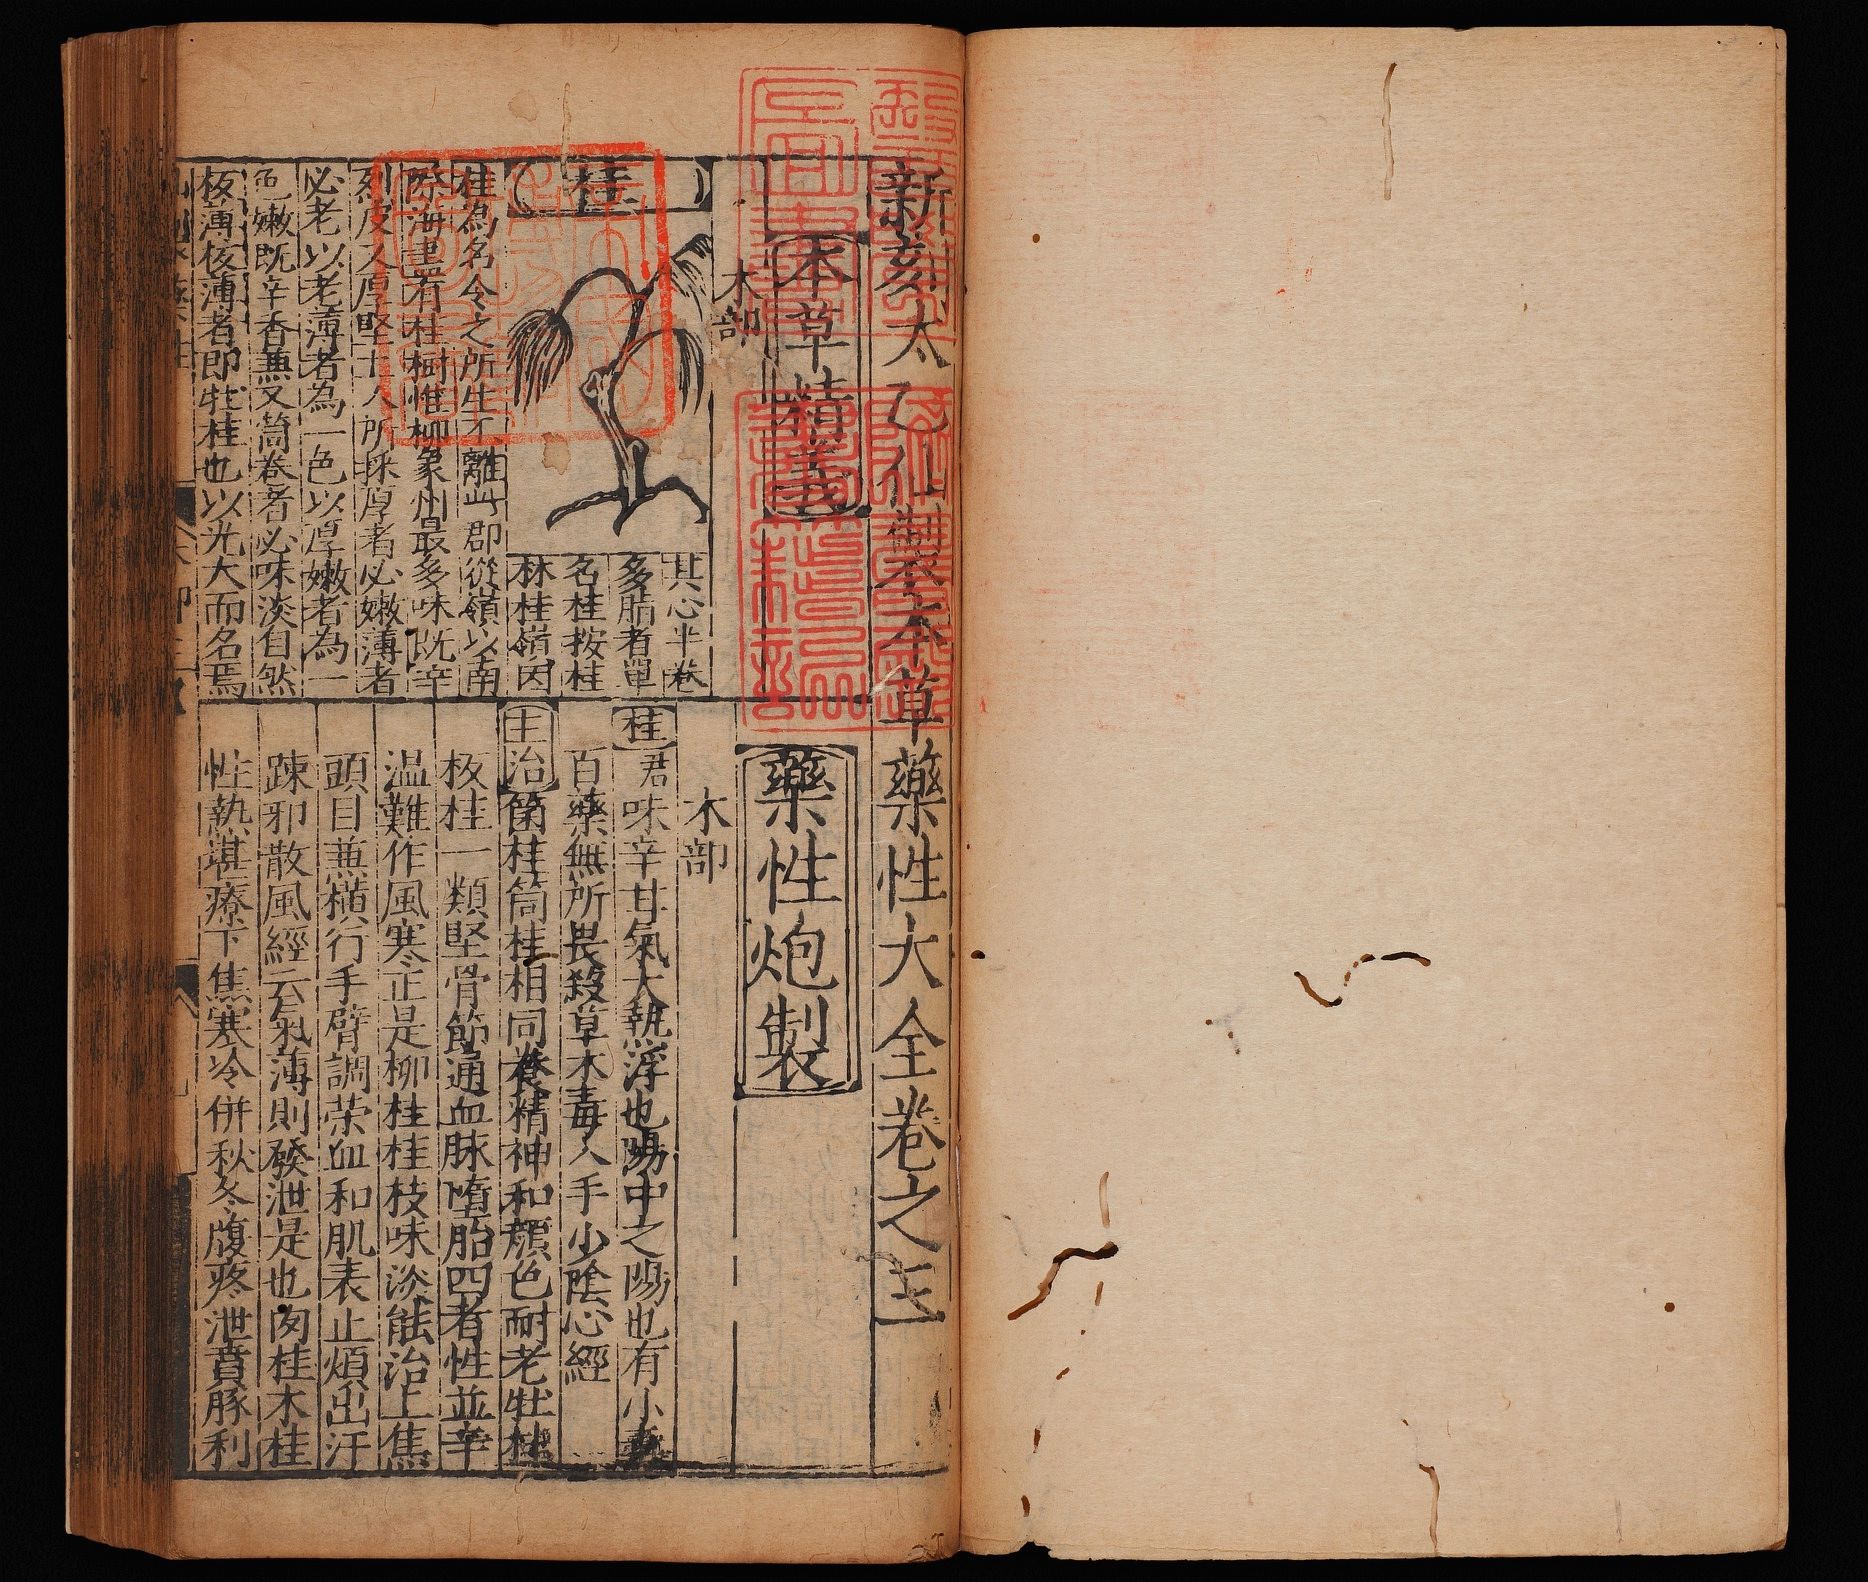 新刻太乙仙製本草藥性大全卷之三
本草精義
木部
桂
其心半卷
多脂者單
名桂按桂
林桂嶺因
桂為名今之所生不離此郡從嶺以南
際海盡有桂樹惟柳象州最多味既辛
烈皮又厚堅土人所採厚者必嫩薄者
必老以老薄者為一色以厚嫩者為一
色嫩既辛香兼又筒卷者必味淡自然
板薄板薄者即牡桂也以光大而名焉
藥性炮製
木部
桂君味辛甘氣大熱浮也陽中之陽也有小毒
百藥無所畏殺草木毒入手少陰心經
主治箘桂筒桂相同養精神和顏色耐老牡桂
板桂一類堅骨節通血脉墮胎四者性並辛
温難作風寒正是柳桂桂枝味淡能治上焦
頭目兼橫行手臂調荣血和肌表止煩出汗
踈邪散風經云氣薄則發泄是也肉桂木桂
性熱堪療下焦寒冷併秋冬腹疼泄賁豚利